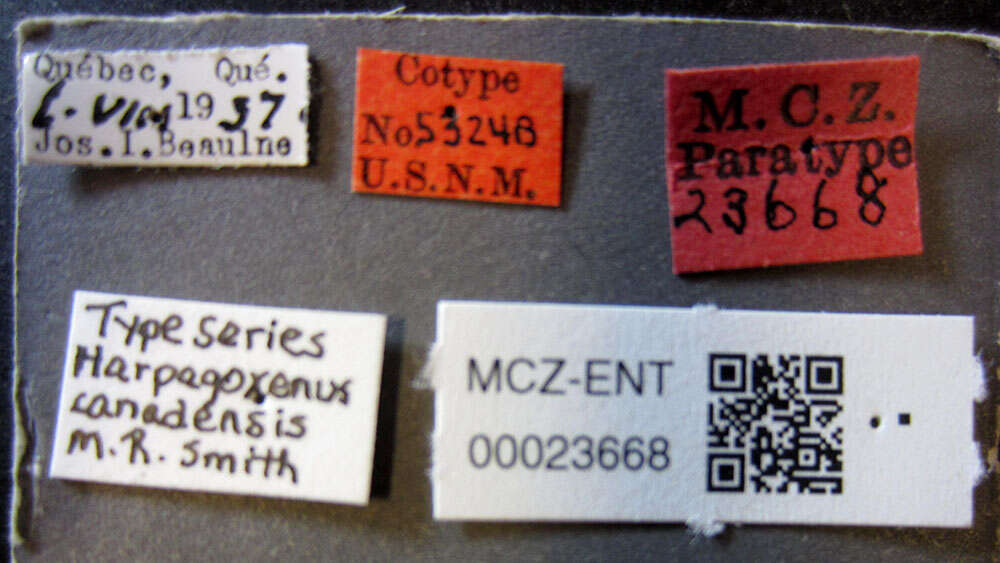 Québec, Qué.
1937.
Jos. I. Beaulne
Cotype
No. 53248
U.S.N.M.
M. C. Z.
Paratype
23668
Type series
Harpagoxenus
canadensis
M. R. Smith
MCZ-ENT
00023668